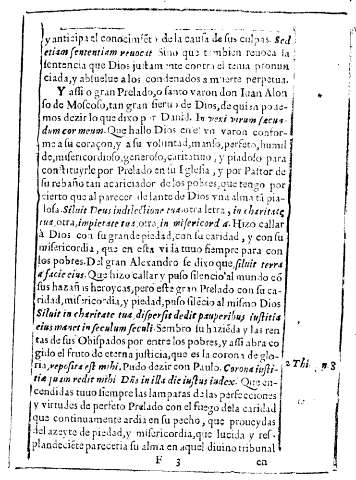 y anticipa el conocimiēto de la causa de sus culpas. Sed
etiam sententiam reuocat Sino que tambien reuoca la
sentencia que Dios justamente contra el tenia pronun
ciada, y absuelue a los condenados a muerte perpetua.
Y assi o gran Prelado, o santo varon don Iuan Alon
so de Moscoso, tan gran sieruo de Dios, de quien pode
mos dezir lo que dixo por Dauid. In veni virum secun-
dum cor meum. Que hallo Dios en el vn varon confor-
me a su coraçon, y a su voluntad, manso, perfeto, humil
de, misericordioso, generoso, caritatiuo, y piadoso para
constituyrle por Prelado en su Iglesia, y por Pastor de
su rebaño tan acariciador de los pobres, que tengo por
cierto que al parecer de lante de Dios vna alma tā pia-
losa. Siluit Deus indilectione tua otra letra, in charitate
tua, otra, impietate tua, otra, in misericordia. Hizo callar
à Dios con su grande piedad, con su caridad, y con su
misericordia, que en esta vida tuuo siempre para con
los pobres. Del gran Alexandro se dixo que, siluit terra
a facie eius. Que hizo callar y puso silencio al mundo cō
sus hazañas heroycas, pero este gran Prelado con su ca-
ridad, misericordia, y piedad, puso silēcio al mismo Dios
Siluit in charitate tua, dispersit dedit pauperibus iustitia
eius manet in seculum seculi. Sembro su haziēda y las ren
tas de sus Obispados por entre los pobres, y assi abra co
gido el fruto de eterna justicia, que es la corona de glo-
ria, reposita est mihi. Pudo dezir con Paulo. Corona iusti-
tiæ quam redit mihi Dñs in illa die iustus iudex. Que en-
cendidas tuuo siempre las lamparas de las perfecciones
y virtudes de perfeto Prelado con el fuego de la caridad
que continuamente ardia en su pecho, que proucydas
del azeyte de piedad, y misericordia, que lucida y res-
plandeciēte pareceria su alma en aquel diuino tribunal
2 Thi. n 8
F 3 en